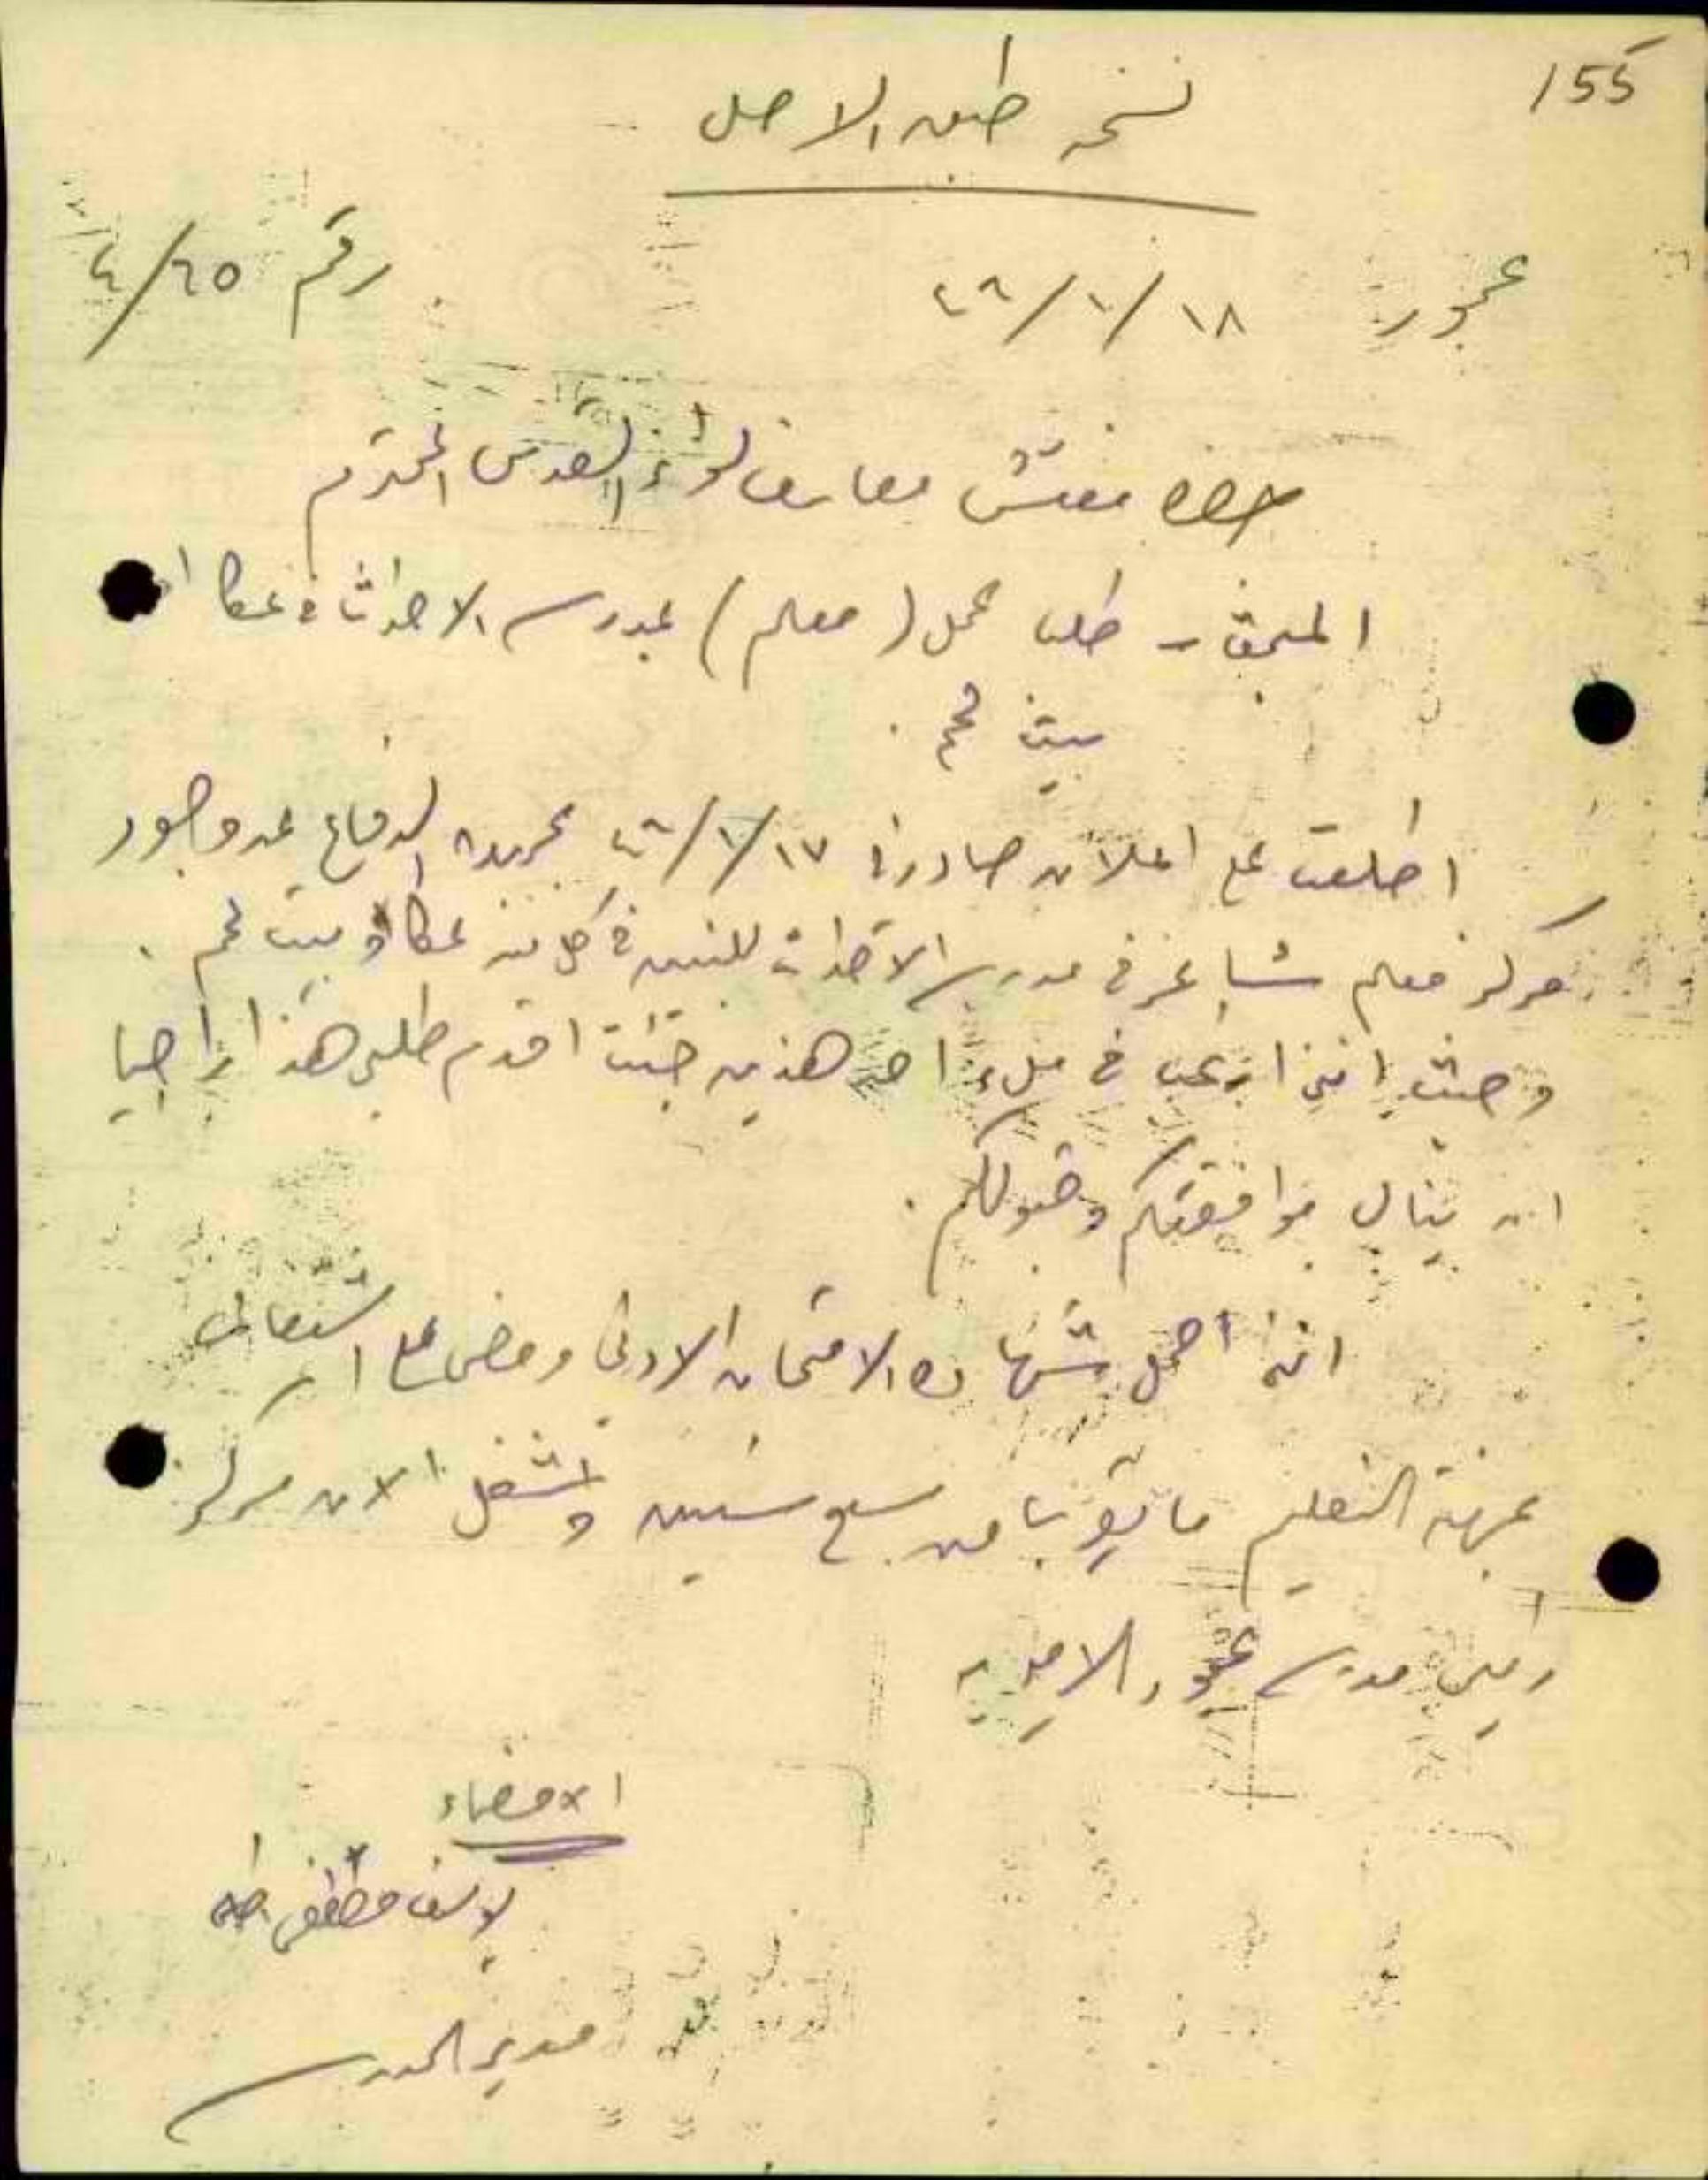 155
نسخة طبق الاصل
عجور ١٨/١/٤٦ رقم ٤/٦٥
حضرة مفتش معارف لواء القدس المحترم
الموضوع – طلب عمل (معلم) بمدرسة الاحداث في عكا او
بيت لحم .
اطلعت على اعلان صادر في ١٧/١/٤٦ بجريدة الدفاع عن وجود
مركز معلم شاغر في مدرسة الاحداث للبنين في كل من عكا و بيت لحم .
وحيث انني ارغب في ملء احد هذين جئت اقدم طلبي هذا راجيا
ان ينال موافقتكم وقبولكم .
انني احمل شهادة الامتحان الادنى ومضى على اشتغالي
بمهنة التعليم ما يقرب من سبع سنين واشغل الان مركز
رئيس مدرسة عجور الاميرية
الامضاء
يوسف مصطفى طه
مدير المدرسة